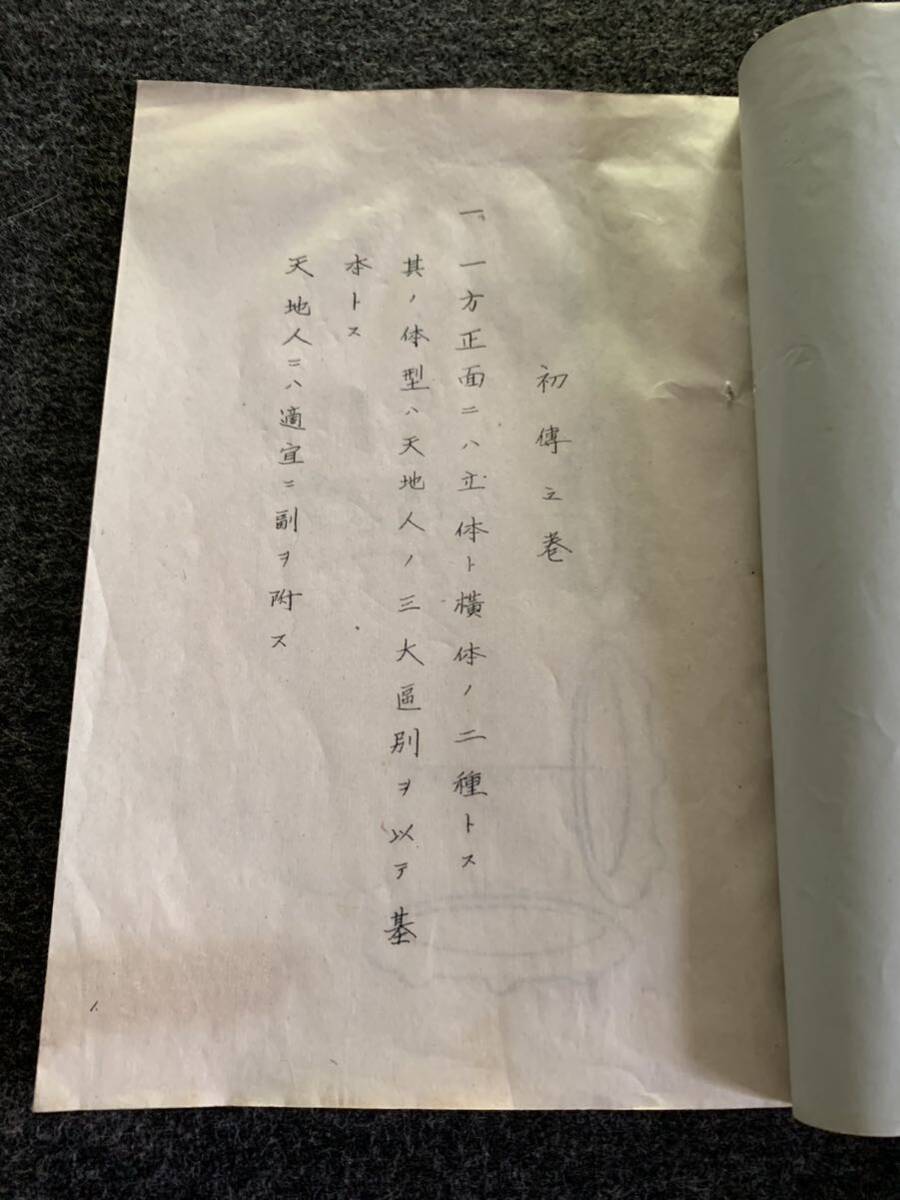 初傳之巻
一、一方正面ニハ立体ト横体ノ二種トス
其ノ体型ハ天地人ノ三大區別ヲ以テ基
本トス
天地人ニハ適宜ニ副ヲ附ス